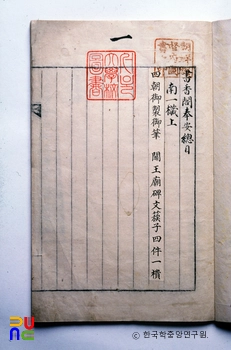 一
書香閣奉安總目
南一欌上
四朝御製御筆 關王廟碑文簇子四件一樻
ⓒ 한국학중앙연구원.